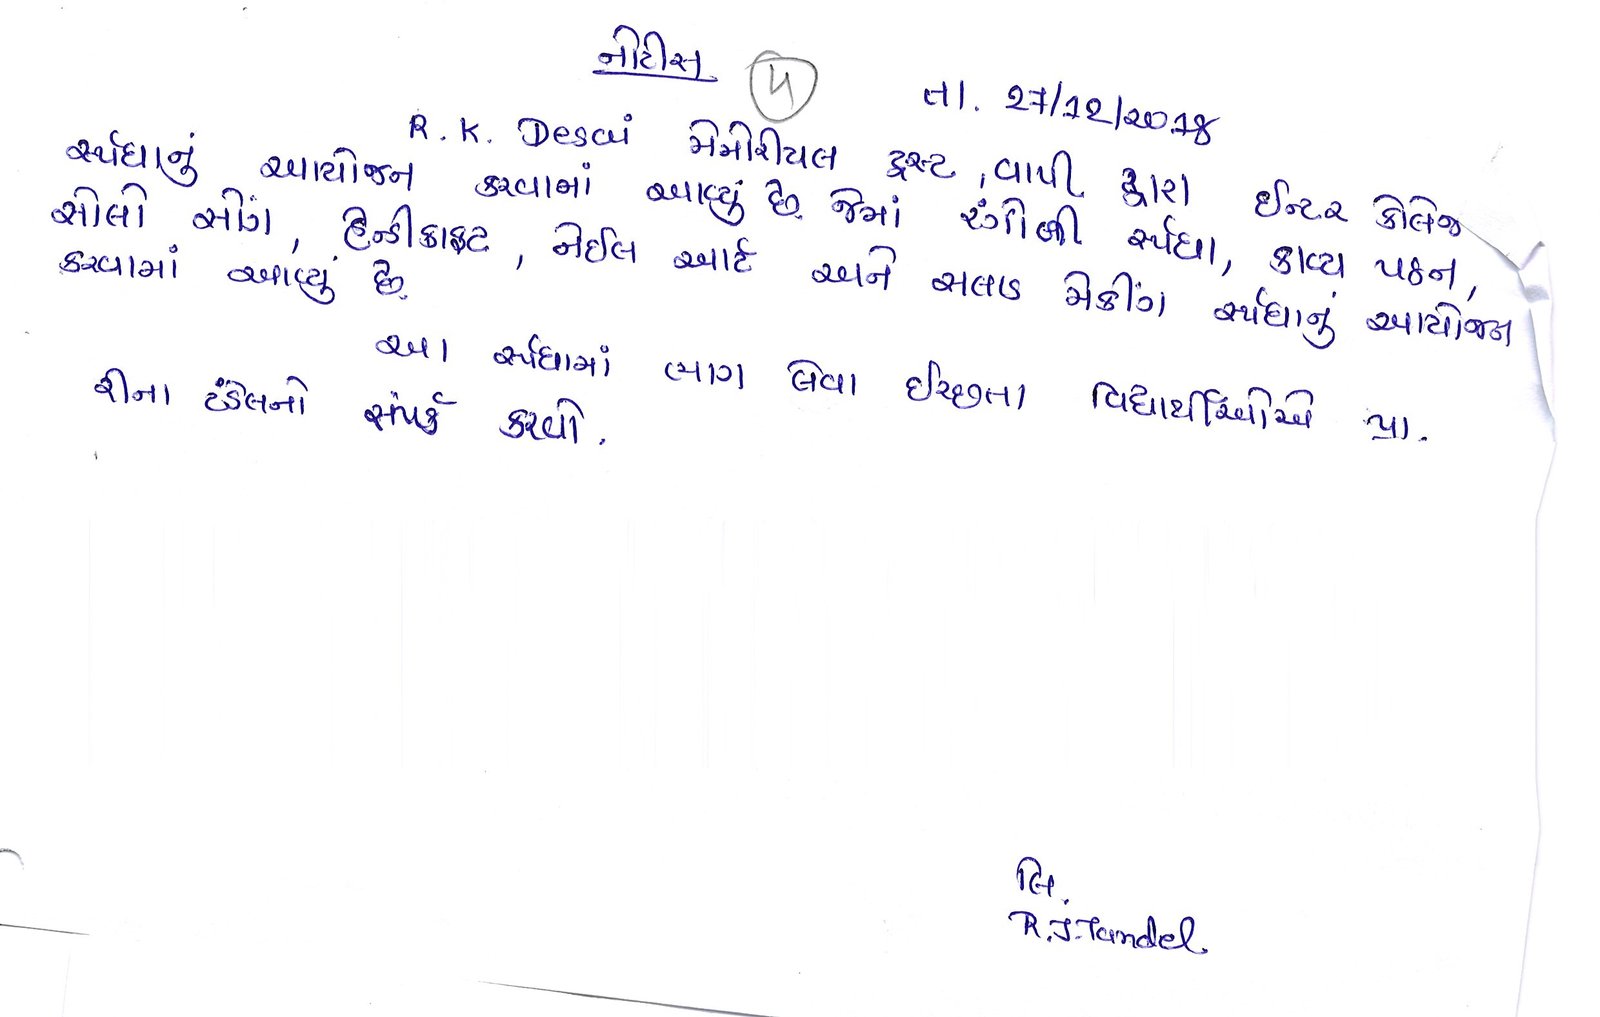 નોટીસ
૫
તા. 27/12/2018
R. K. Desai મેમોરીયલ ટ્રસ્ટ, વાપી દ્વારા ઈન્ટર કોલેજ
સ્પર્ધાનું આયોજન કરવામાં આવ્યું છે. જેમાં રંગોળી સ્પર્ધા, કાવ્ય પઠન,
સોલો સોંગ, હેન્ડીક્રાફ્ટ, નેઈલ આર્ટ અને સલાડ મેકીંગ સ્પર્ધાનું આયોજન
કરવામાં આવ્યું છે.
આ સ્પર્ધામાં ભાગ લેવા ઈચ્છતા વિદ્યાર્થીઓએ પ્રા.
રીના ટંડેલનો સંપર્ક કરવો.
લિ.
R.J.Tandel